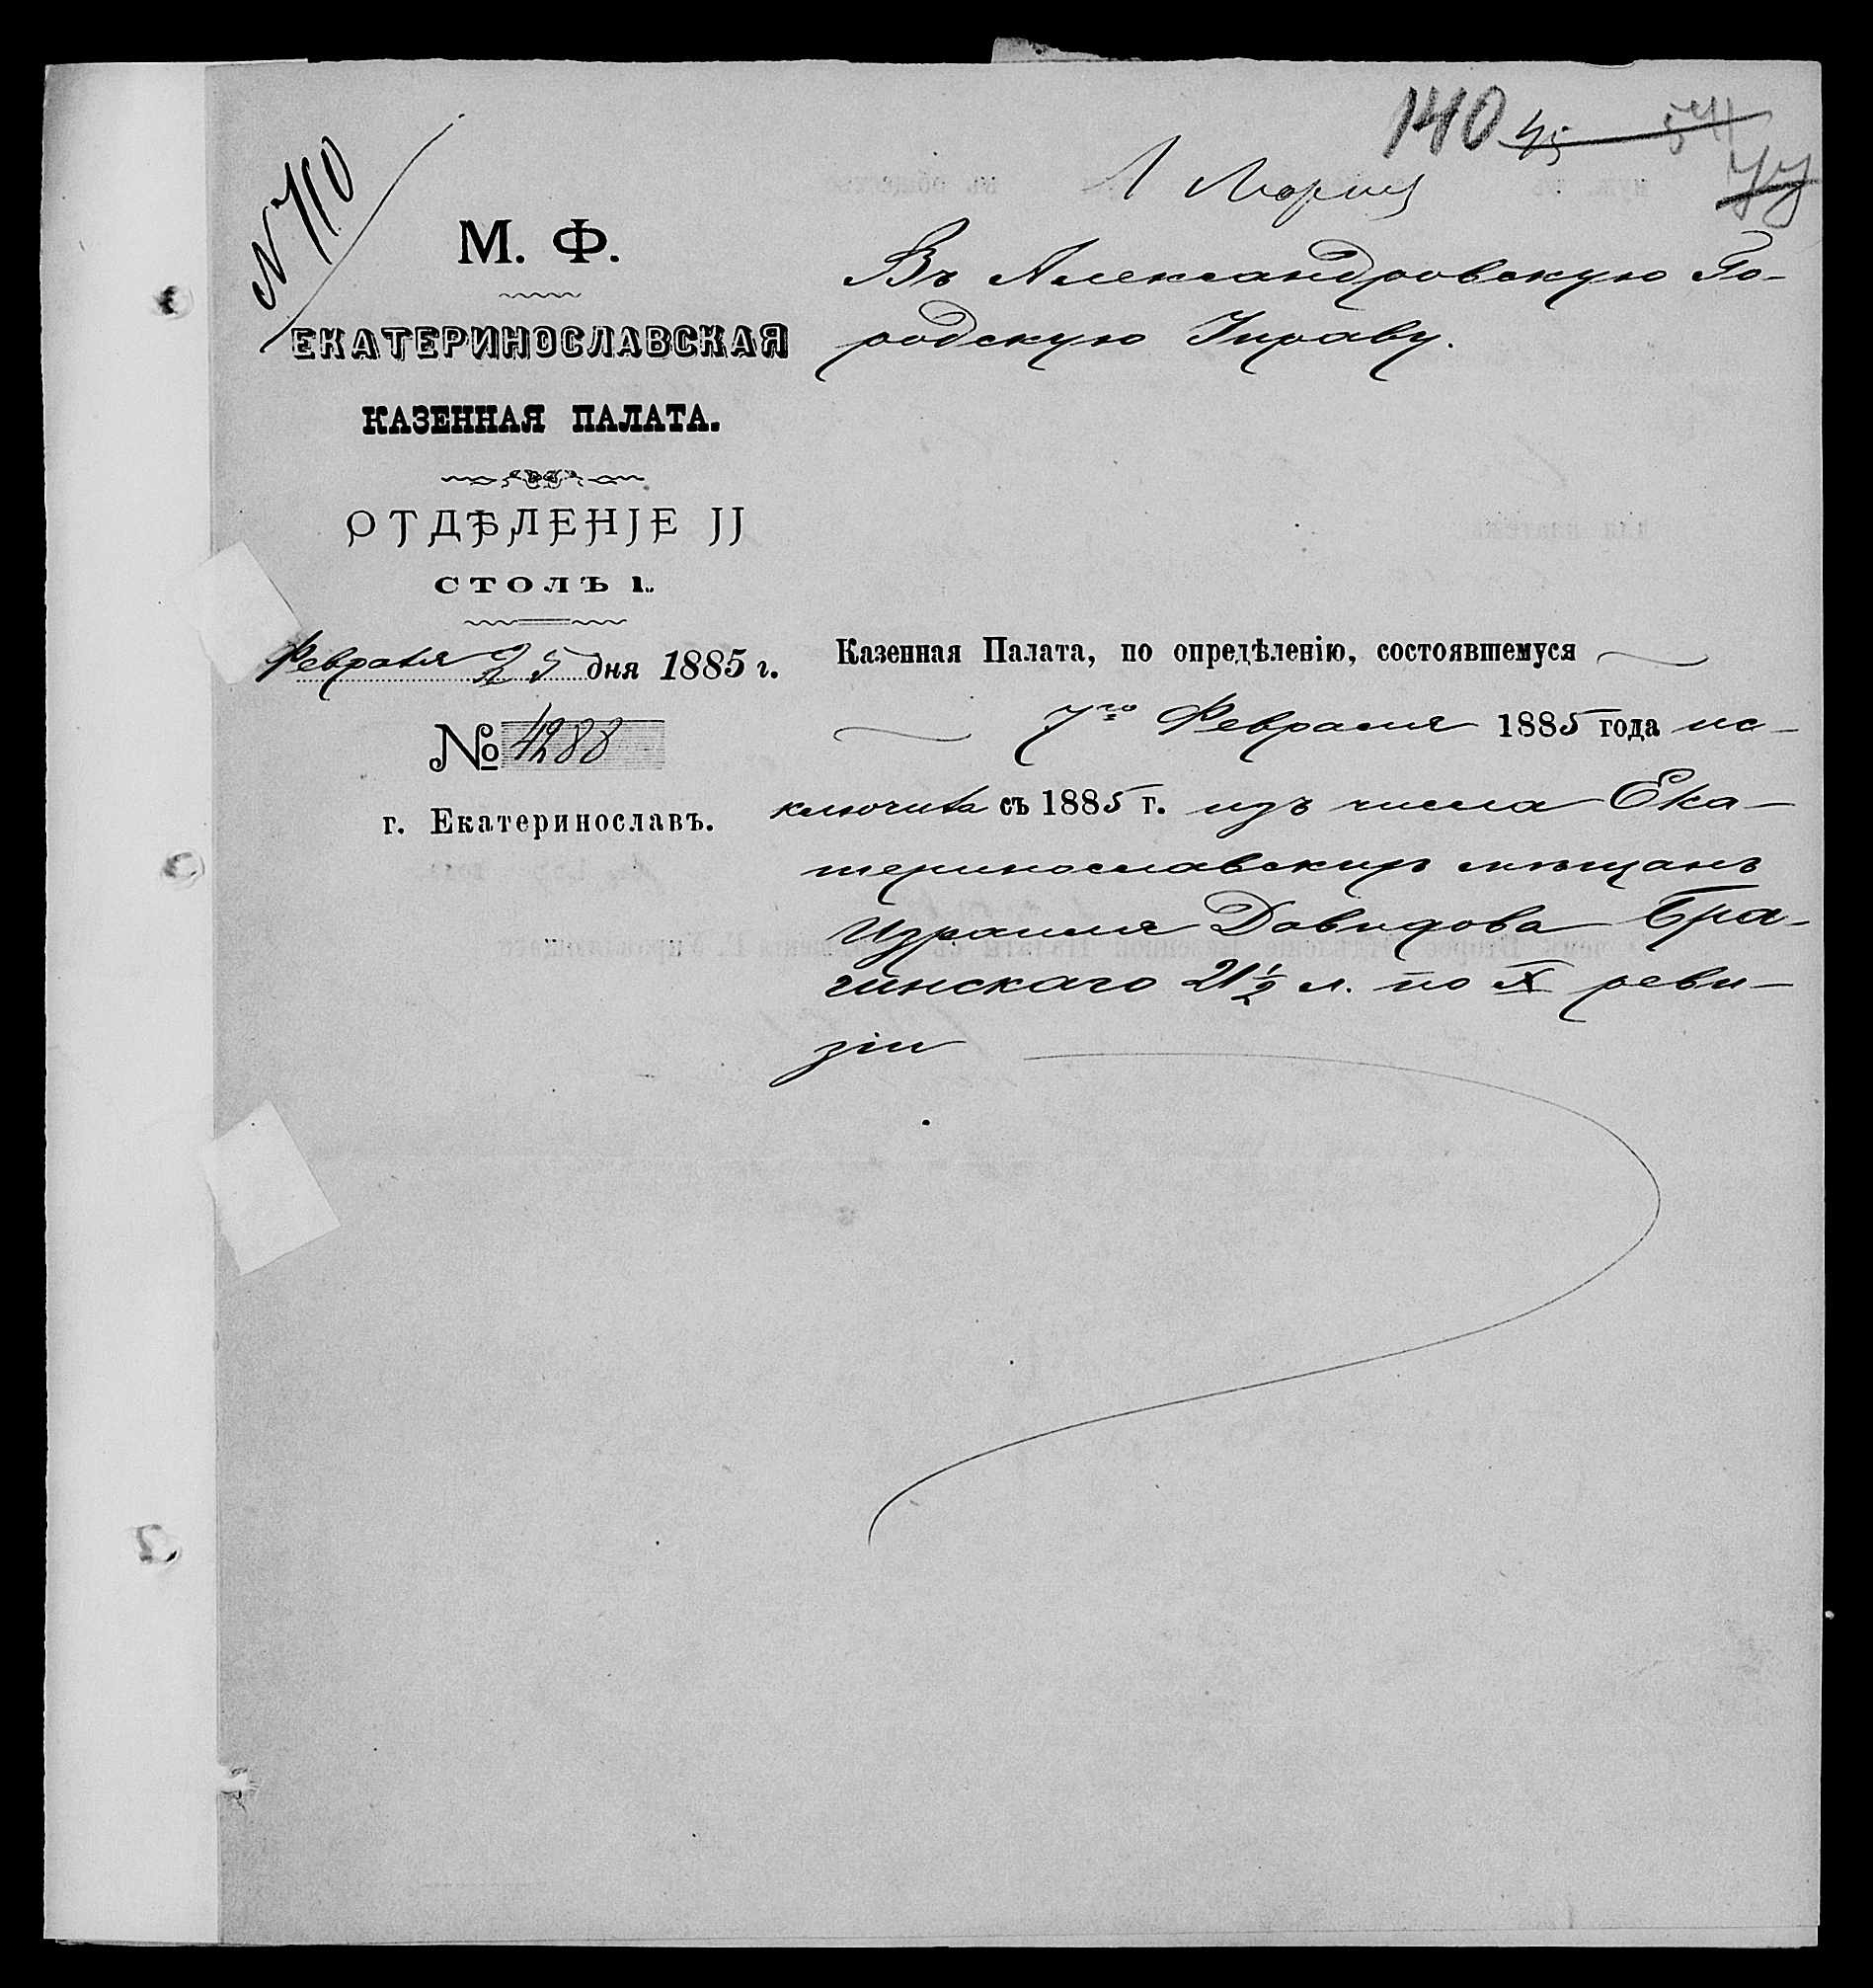 140 45 54
77
N 710
1 Марта
М. Ф.
ЕКАТЕРИНОСЛАВСКАЯ
КАЗЕННАЯ ПАЛАТА.
ОТДѢЛЕНІЕ II
СТОЛЪ 1.
Февраля 25 дня 1885 г.
№ 4288
г. Екатеринославъ.
Въ Александровскую Го-
родскую Управу.
Казенная Палата, по опредѣленію, состоявшемуся
7го Февраля 1885 года ис-
ключила съ 1885 г. изъ числа Ека-
теринославскихъ мѣщанъ
Израиля Давидова Бра-
гинскаго 21½ л. по X реви-
зіи